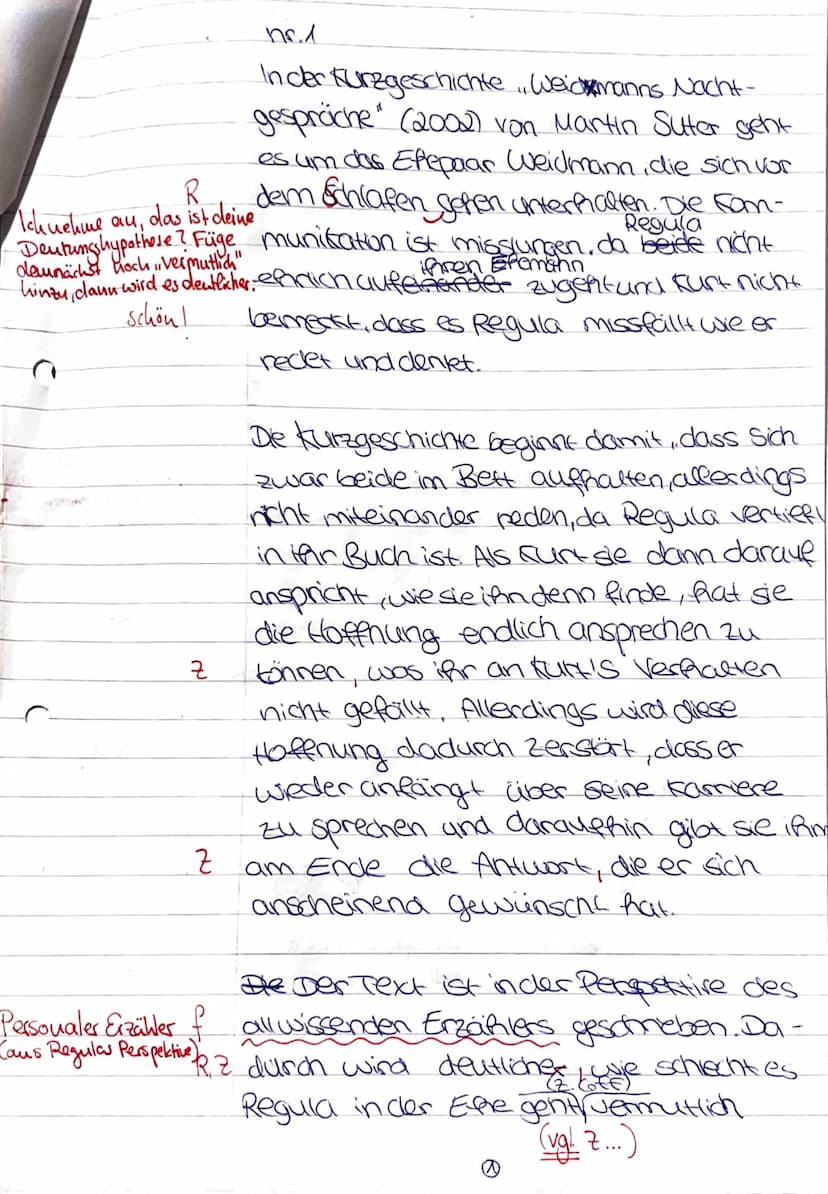 nr.1
In der Kurzgeschichte „Weidmanns Nacht-
gespräche" (2002) von Martin Suter geht
es um das Ehepaar Weidmann, die sich vor
R
dem Schlafen gehen unterhalten. Die Kom-
Ich nehme an, das ist deine
Deutungshypothese? Füge
demnächst noch „vermutlich"
hinzu, dann wird es deutlicher.
schön!
Regula
munikation ist misslungen, da beide nicht
ihren Ehemann
ehrlich aufeinander zugeht und Kurt nicht
bemerkt, dass es Regula missfällt wie er
redet und denket.
Die Kurzgeschichte beginnt damit, dass sich
zwar beide im Bett aufhalten, allerdings
nicht miteinander reden, da Regula vertieft
in ihr Buch ist. Als Kurt sie dann darauf
anspricht, wie sie ihn denn finde, hat sie
die Hoffnung endlich ansprechen zu
Z
können, was ihr an Kurt's Verhalten
nicht gefällt. Allerdings wird diese
Hoffnung dadurch zerstört, dass er
wieder anfängt über seine Karriere
zu sprechen und daraufhin gibt sie ihm
Z
am Ende die Antwort, die er sich
anscheinend gewünscht hat.
Die Der Text ist in der Perspektive des
Personaler Erzähler f
(aus Regulas Perspektive)
allwissenden Erzählers geschrieben. Da-
R, Z
durch wird deutlicher, wie schlecht es
(Z. 6ff)
Regula in der Ehe geht/vermutlich
(vgl. Z...)
1